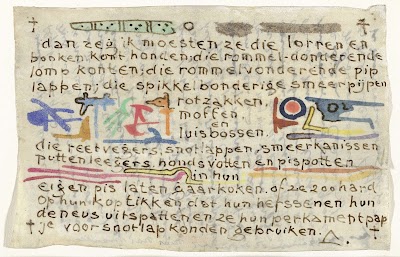 dan zeg ik moesten ze die lorren en
bonken, kont honden; die rommel-donderende
lomp konten; die rommelvonderende pip
lappen; die spikkelbonderige smeerpijpen
rotzakken,
moffen
en
luisbossen.
die reetvegers, snotlappen, smeerkanissen
puttenleegers, hondsvotten en pispotten
in hun
eigen pis laten gaarkoken. of ze zoo hard
op hun kop tikken dat hun hefssenen hun
de neus uitspatten en ze hun perkament pap
je voor snotlap konden gebruiken.